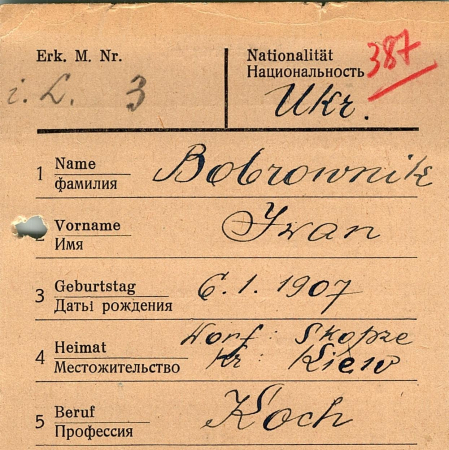 Erk. M. Nr.
i. L. 3
Nationalität
Национальность
387
Ukr.
1 Name
фамилия
Bobrownik
2 Vorname
Имя
Iwan
3 Geburtstag
Даты рождения
6. 1. 1907
4 Heimat
Местожительство
Dorf: Skopze
Kr: Kiew
5 Beruf
Профессия
Koch